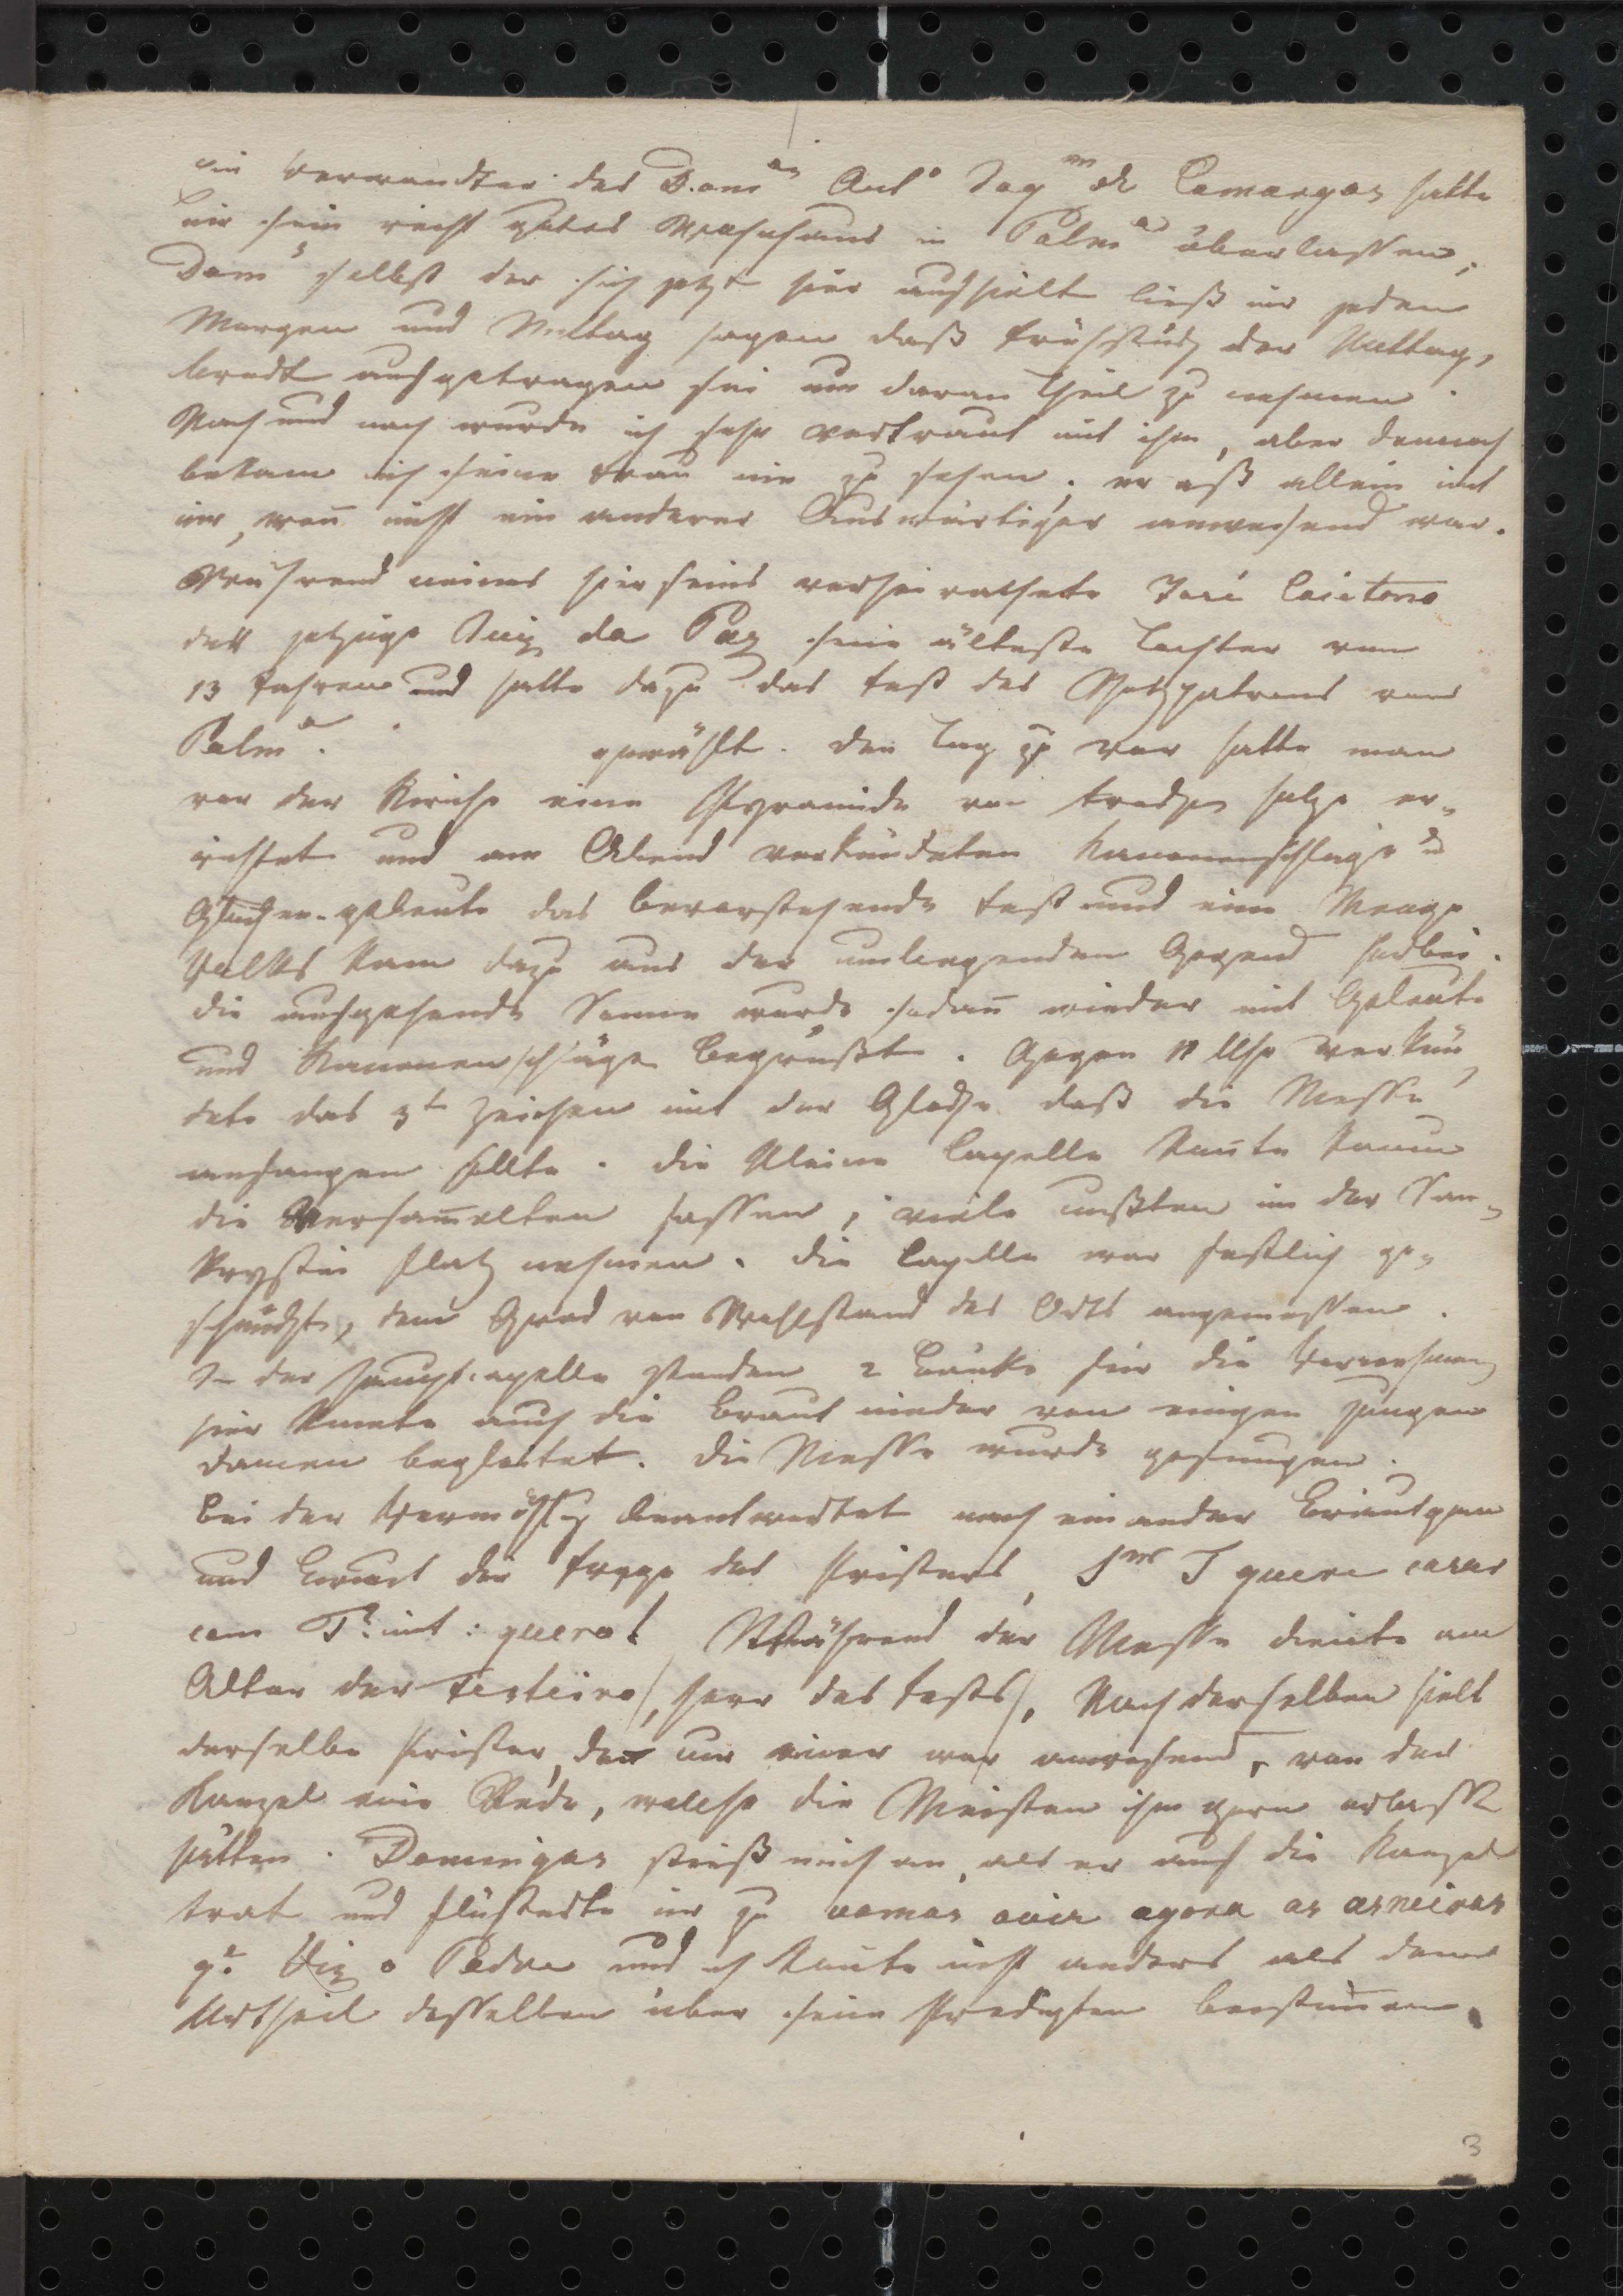 ein Verwandter des Dom.os Ant.o Joaq.m de Camargos hatte
mir sein recht gutes Wohnhaus in Palm.as überlassen,
Dom.s selbst der sich jetzt hier aufhielt ließ mir jeden
Morgen und Mittag sagen daß Frühstück oder Mittag,
brodt aufgetragen sei um daran Theil zu nehmen.
Nach und nach wurde ich sehr vertraut mit ihm, aber dennoch
bekam ich seine Frau nie zu sehen; er aß allein mit
mir, wen̄ nicht ein anderer Auswärtiger anwesend war.
Während meines hierseins verheirathete José Caietano
der jetzige Juiz da Paz seine älteste Tochter von
13 Jahren und hatte dazu das Fest des Schutzpatrons von
Palm.a gewählt. Den Tag zu vor hatte man
vor der Kirche eine Pyramide von trocknem Holze er-
richtet und am Abend verkündeten Kanonenschläge u
Glocken-geläute das bevorstehende Fest und eine Menge
Volks kam dazu aus der umliegenden Gegend herbei.
die aufgehende Sonne wurde sodan̄ wieder mit Geläute
und Kanonenschläge begrüßt. Gegen 11 Uhr verkün,
dete das 3te Zeichen mit der Glocke daß die Messe
anfangen sollte. die kleine Capelle kon̄te kaum
die Versam̄elten fassen, viele mußten in der Sa-
krystei Platz nehmen. Die Capelle war festlich ge-
schmückt, dem Grad von Wohlstand des Orts angemessen.
In der Hauptcapelle standen 2 Bänke für die Vornehmen
hier kniete auch die Braut nieder von einigen jungen
Damen begleitet. Die Messe wurde gesungen.
Bei der Vermählg beantwortet nach einander Bräutigam
und Braut die Frage des Priesters, S.r J quere casar
com T? mit: quero! Während der Messe diente am
Altar der Festeiro /Herr des Fests/. Nach derselben hielt
derselbe Priester, den nur einer war anwesend, von der
Kanzel eine Rede, welche die Meisten ihm gern erlassen
hätten. Domingos stieß mich an, als er auf die Kanzel
trat und flüsterte mir zu vamos ouvir agora as asneiras
q.e diz o Padre und ich kon̄te nicht anders als dem
Urtheil desselben über seine Predigten beistim̄en.
3